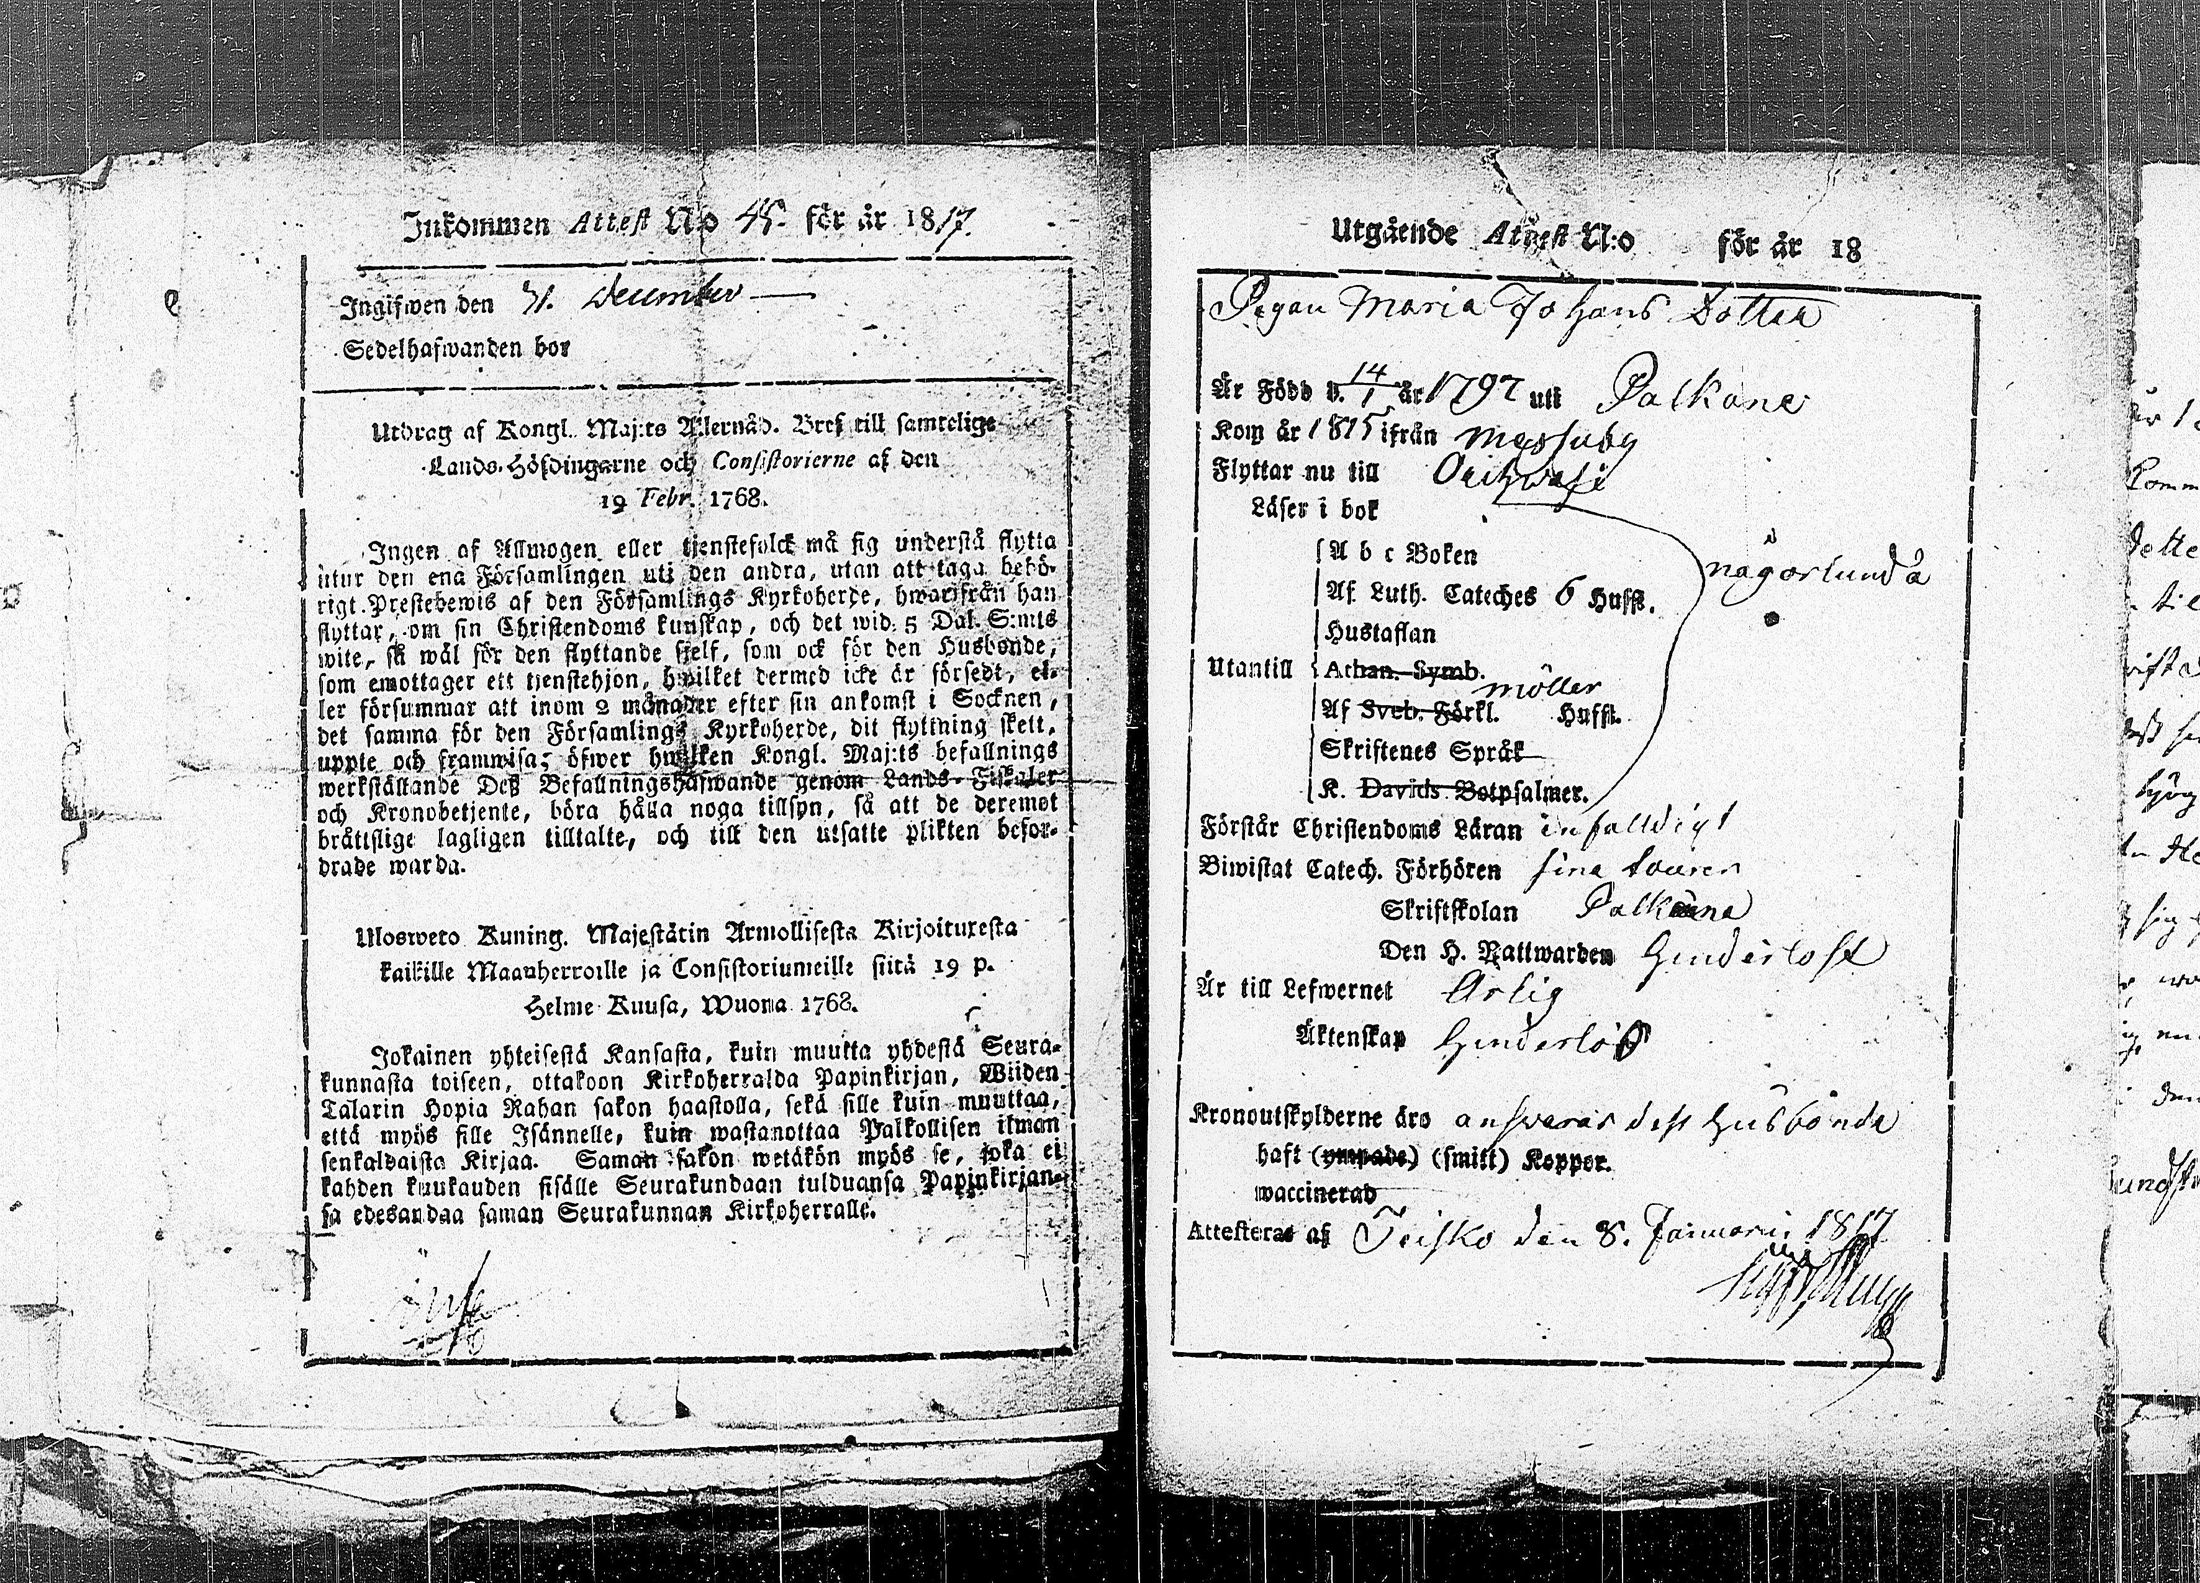 Inkommen Attest N:o 45. för år 1817.
Ingifwen den 31. December
Sedelhafwanden bor
Utdrag af Kongl. Maj:ts Allernåd. Bref till samtelige
Lands-Höfdingarne och Consistorierne af den
19 Febr. 1768.
Ingen af Allmogen eller tjenstefolck må sig understå flytta
utur den ena Församlingen uti den andra, utan att taga behö-
rigt Prestebewis af den Församlings Kyrkoherde, hwarifrån han
flyttar, om sin Christendoms kunskap, och det wid 5 Dal. S:mts
wite, så wäl för den flyttande sjelf, som ock för den Husbonde,
som emottager ett tjenstehjon, hwilket dermed icke är försedt, el-
ler försummar att inom 2 månader efter sin ankomst i Socknen,
det samma för den Församlings Kyrkoherde, dit flyttning skett,
uppte och framwisa; öfwer hwilken Kongl. Maj:ts befallnings
werkställande Deß Befallningshafwande genom Lands-Fiskaler
och Kronobetjente, böra hålla noga tillsyn, så att de deremot
bråttslige lagligen tilltalte, och till den utsatte plikten befor-
drade warda.
Ulosweto Kuning. Majestätin Armollisesta Kirjoituresta
kaikille Maanherroille ja Consistoriumeille siitä 19 p.
Helme Kuusa, Wuona 1768.
Jokainen yhteisestä Kansasta, kuin muutta yhdestä Seura-
kunnasta toiseen, ottakoon Kirkoherralda Papinkirjan, Wiiden
Talarin Hopia Rahan sakon haastolla, sekä sille kuin muuttaa,
että myös sille Isännelle, kuin wastanottaa Palkollisen ilman
senkaldaista Kirjaa. Saman sakon wetäkön myös se, joka ei
kahden kuukauden sisälle Seurakundaan tulduansa Papinkirjan-
sa edesandaa saman Seurakunnan Kirkoherralle.
Utgående Attest N:o för år 18
Pigan Maria Johans Dotter
Är Född d. 14/1 år 1797 uti Palkane
Kom år 1815 ifrån Messuby
Flyttar nu till Orihwesi
Läser i bok
A b c Boken
någorlunda
Af Luth. Cateches 6 Hufst.
Hustaflan
Utantill Athan. Symb.
möller
Af Sveb. Förkl. Hufst.
Skriftenes Språk
K. Davids Botpsalmer.
Förstår Christendoms Läran enfalldigt
Biwistat Catech. Förhören sina tourer
Skriftskolan Palkäne
Den H. Nattwarden Hinderlöst
Är till Lefwernet Ärlig
Äktenskap Hinderlös
Kronoutskylderne äro answaras dess Husbonde
haft (ympade) (smitt) Koppor.
waccinerad
Attesteras af Teisko den 8. Januarii 1817